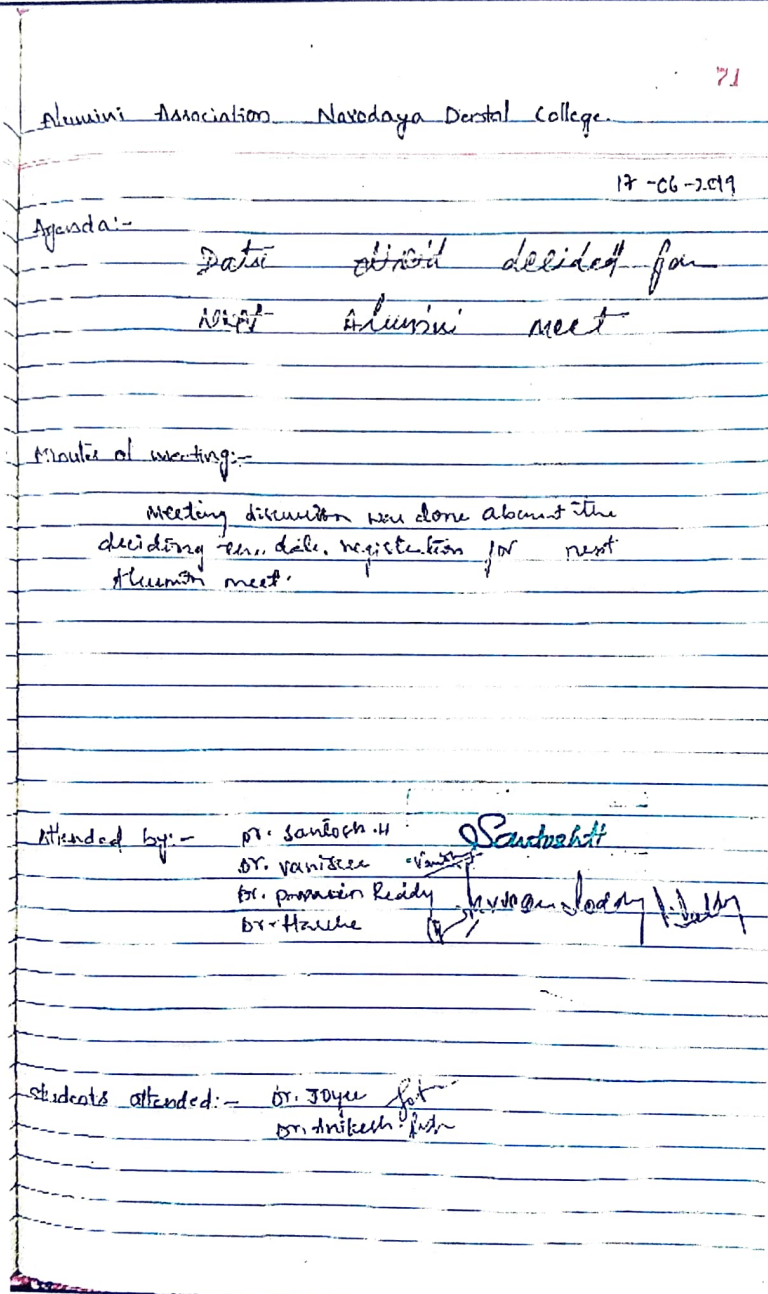 71
Alumini Association Navodaya Dental College.
17-06-2019
Agenda:-
Date decided for
Next Alumini meet
Minutes of meeting:-
Meeting discussion was done about the
deciding date, registration for next
Alumini meet.
Attended by:- Dr. Santosh.H Santosh H
Dr. Vanisree
Dr. Praveen Reddy
Dr. Harsha
Students attended:- Dr. Joyce
Dr. Anikesh